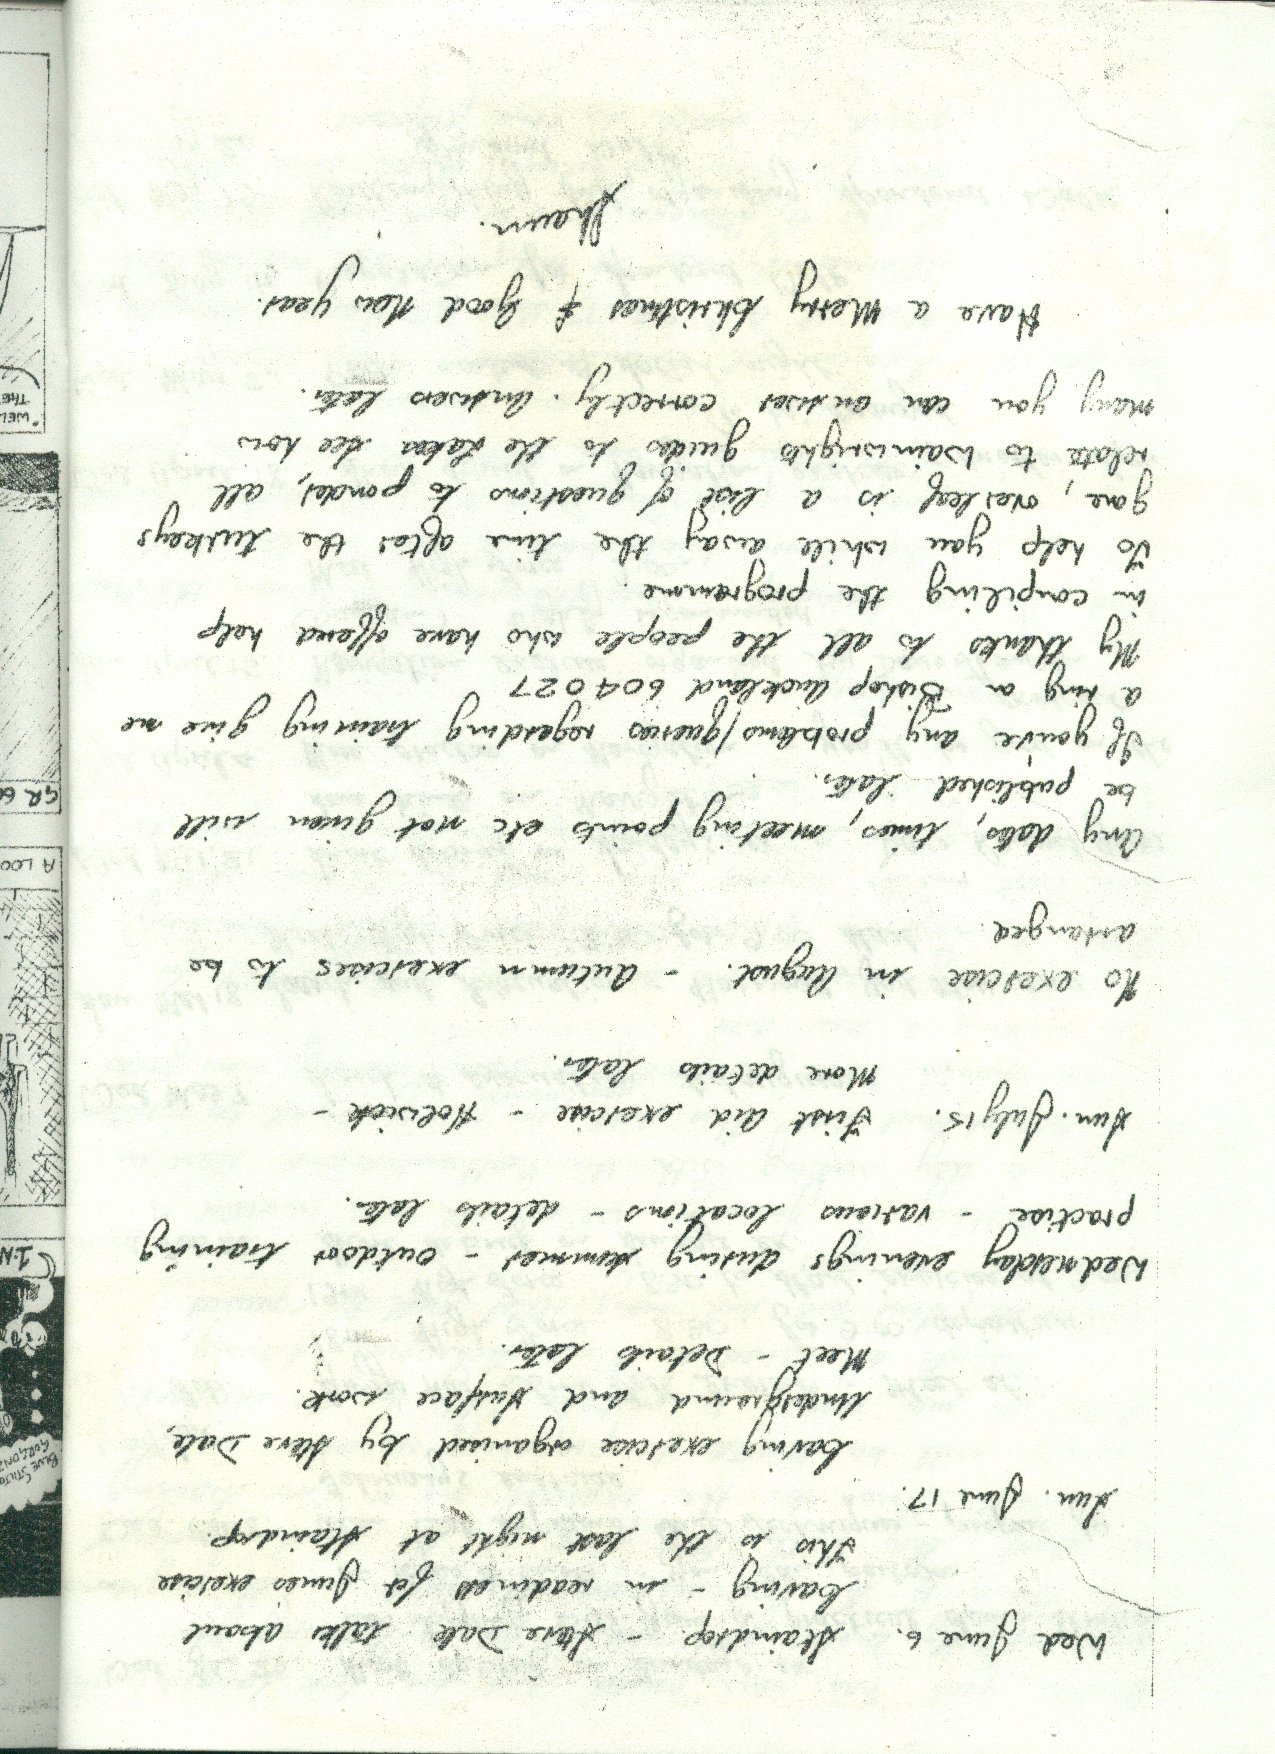 Wed June 6. Staindrop. - Steve Dale talks about
Caving - in readiness for Junes exercise
This is the last night at Staindrop.
Sun. June 17.
Caving exercise organised by Steve Dale,
Underground and surface work.
Meet - Details later.
Wednesday evenings during summer - outdoor training
practice - various locations - details later.
Sun. July 15. First Aid exercise - Holwick -
More details later.
No exercise in August. - Autumn exercises to be
arranged
Any dates, times, meeting points etc not given will
be published later.
If you've any problems/queries regarding training give me
a ring on Bishop Auckland 604027
My thanks to all the people who have offered help
in compiling the programme.
To help you while away the time after the turkeys
gone, overleaf is a list of questions to ponder, all
relate to Wainwrights guides to the Lakes see how
many you can answer correctly. Answers later.
Have a Merry Christmas & good New Year.
Shaun.